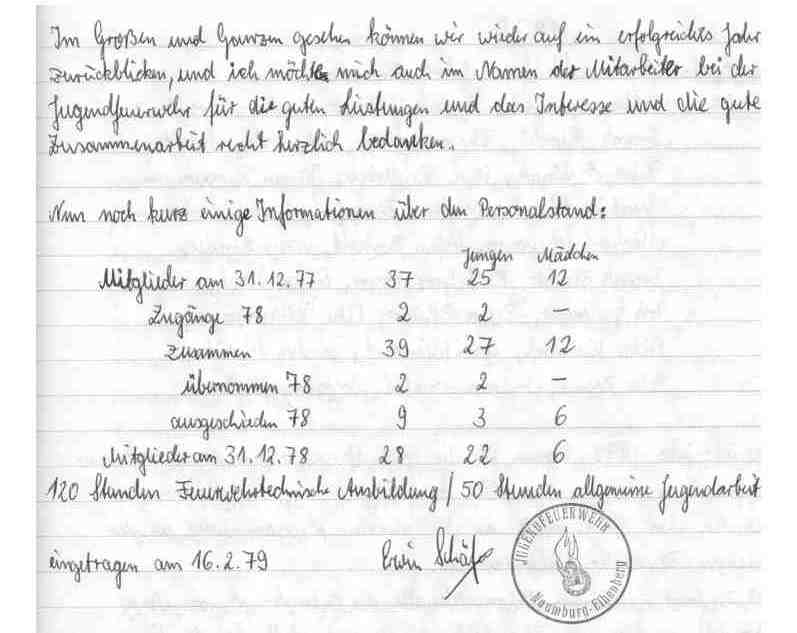 Im Großen und Ganzen gesehen können wir wieder auf ein erfolgreiches Jahr
zurückblicken, und ich möchte mich auch im Namen der Mitarbeiter bei der
Jugendfeuerwehr für die guten Leistungen und das Interesse und die gute
Zusammenarbeit recht herzlich bedanken.
Nun noch kurz einige Informationen über den Personalstand:
Jungen Mädchen
Mitglieder am 31.12.77 37 25 12
Zugänge 78 2 2 –
zusammen 39 27 12
übernommen 78 2 2 –
ausgeschieden 78 9 3 6
Mitglieder am 31.12.78 28 22 6
120 Stunden Feuerwehrtechnische Ausbildung / 50 Stunden allgemeine Jugendarbeit
eingetragen am 16.2.79 Erwin Schäfer
JUGENDFEUERWEHR
Naumburg-Elbenberg